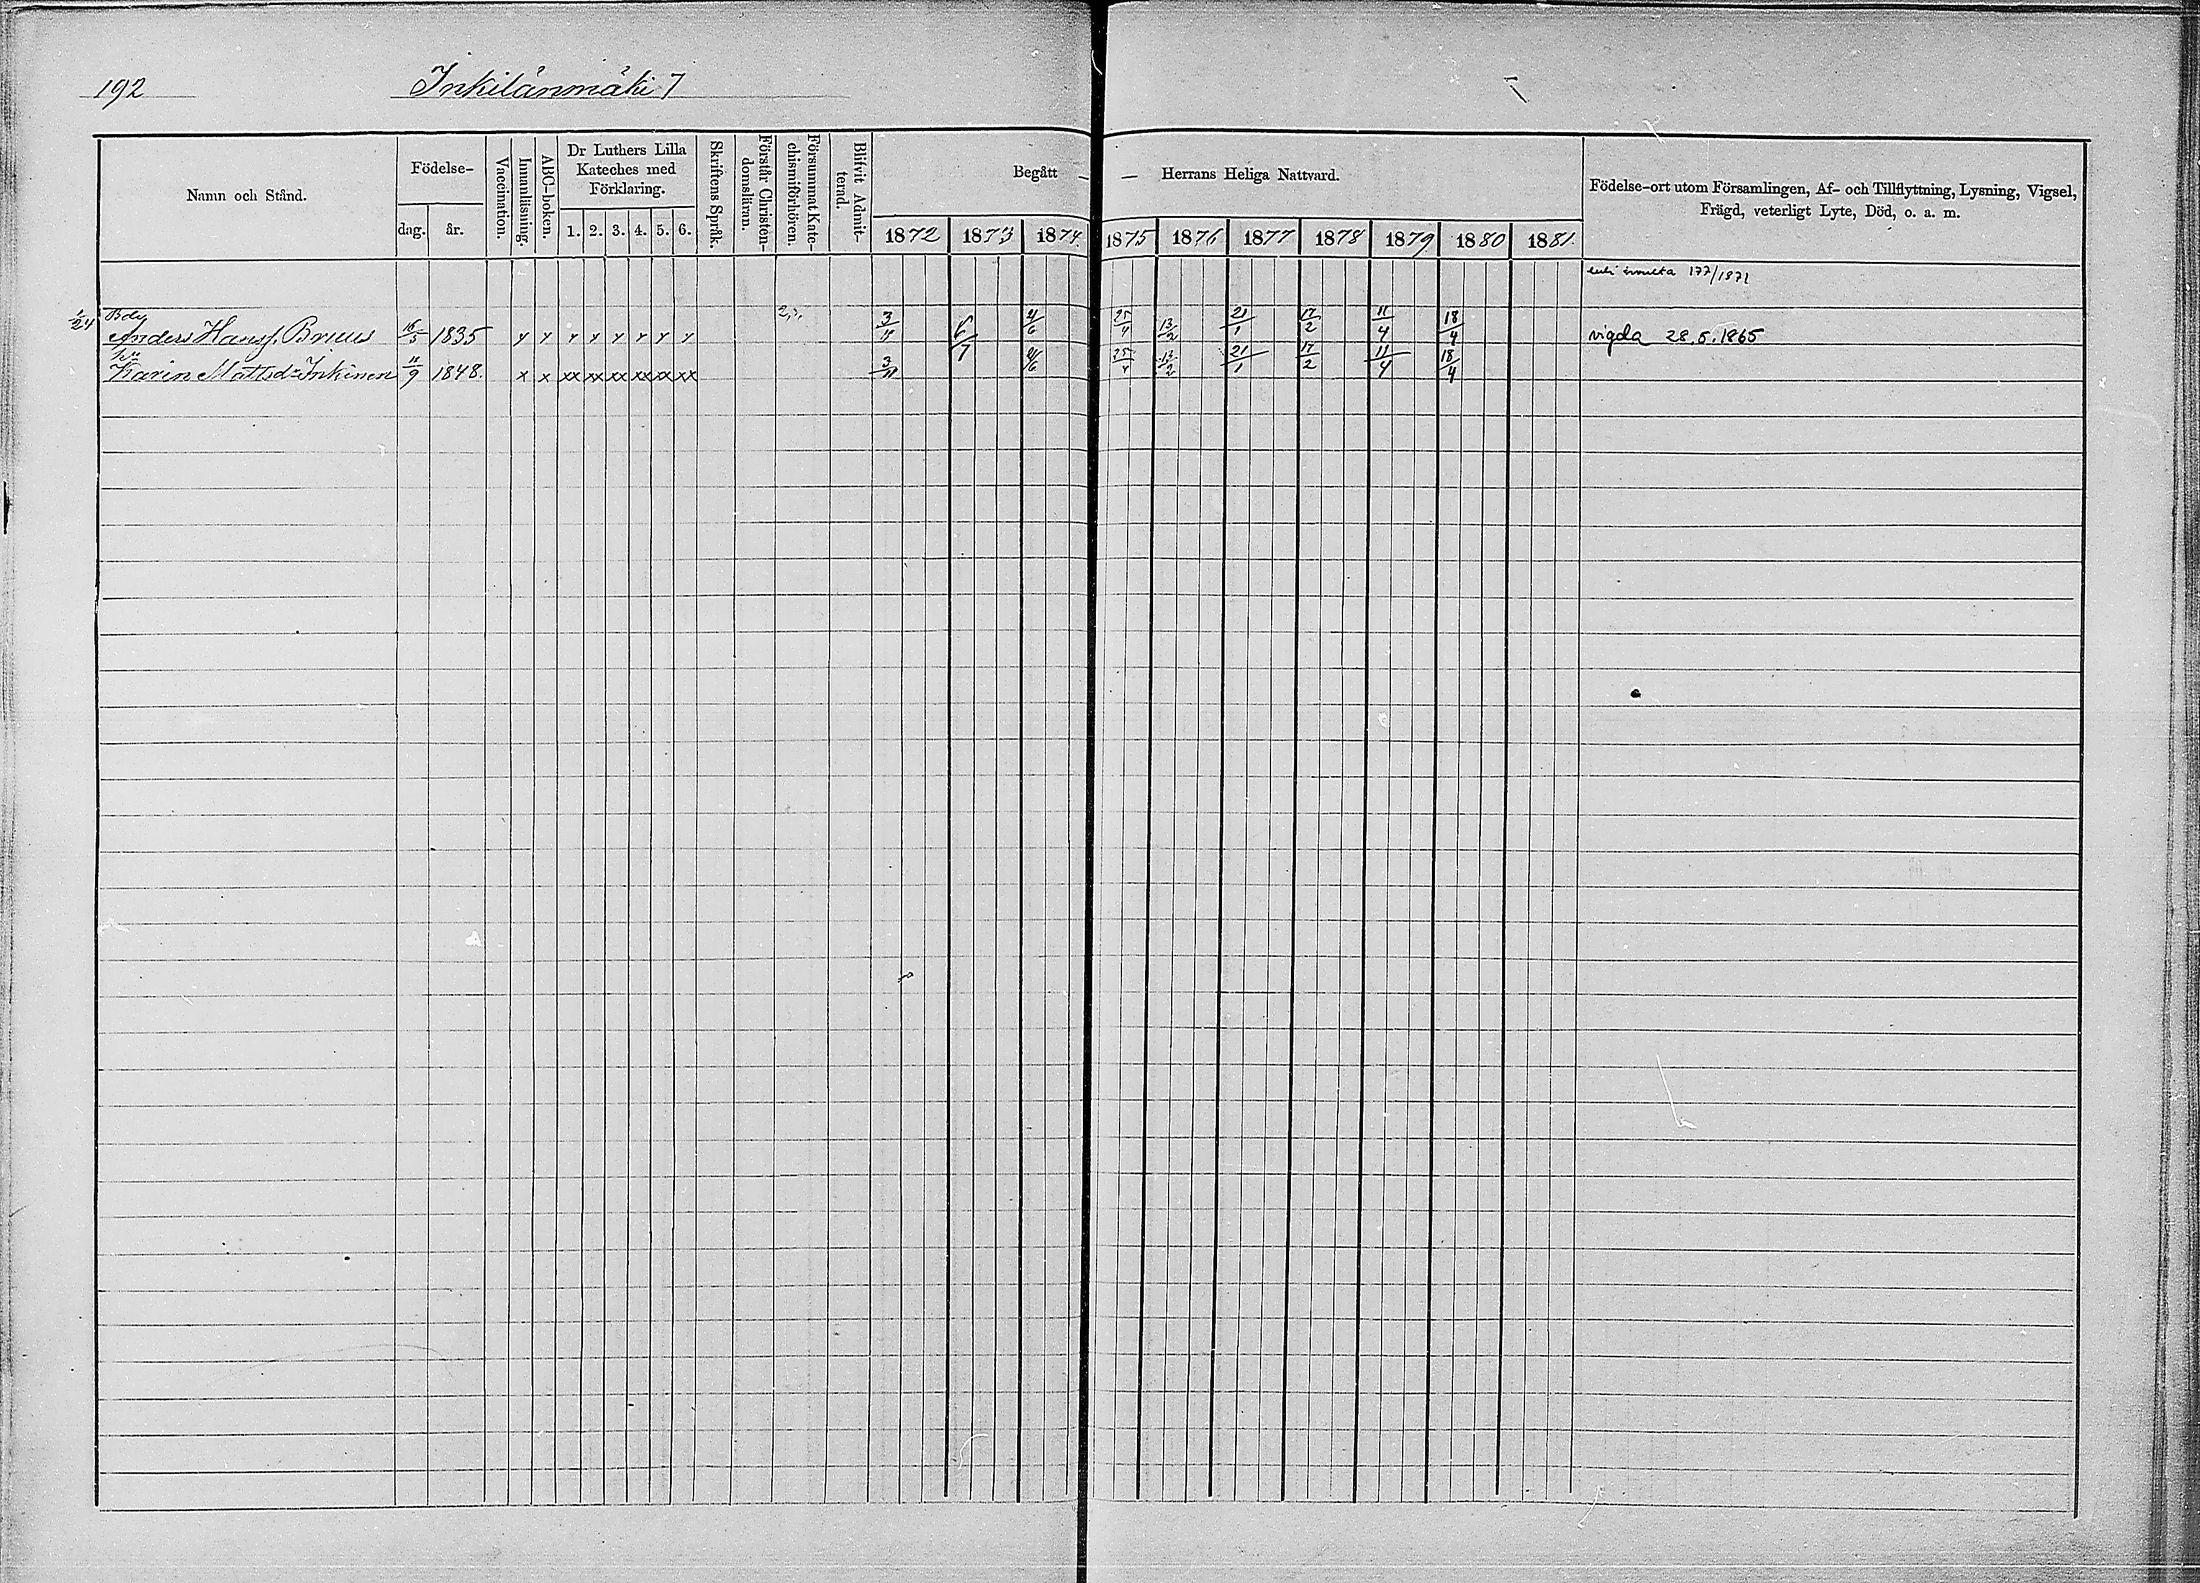 192 Inkilänmäki 7
Namn och Stånd. Födelse- dag. år. Vaccination. Innanläsning. ABC-boken. Dr Luthers Lilla Kateches med Förklaring. 1. 2. 3. 4. 5. 6. Skriftens Språk. Förstår Christendomsläran. Försummat Katechismiförhören. Blifvit Admitterad. Begått — — Herrans Heliga Nattvard. Födelse-ort utom Församlingen, Af- och Tillflyttning, Lysning, Vigsel, Frägd, veterligt Lyte, Död, o. a. m.
1872 1873 1874 1875 1876 1877 1878 1879 1880 1881.
177/1871
1/24 Bdn
Anders Hanss. Bruus 16/5 1835 2,3, 3/11 6/7 4/6 25/4 13/2 21/1 17/2 11/4 18/4 vigda 28.5.1865
hu
Karin Mattsd Inkinen 11/9 1848. x x xx xx xx xx xx xx 3/11 4/6 25/4 13/2 21/1 17/2 11/4 18/4